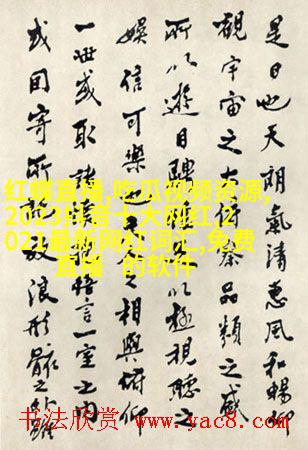 是日也天朗氣清惠風和暢仰
觀宇宙之大俯察品類之盛
所以遊目騁懷足以極視聽之
娛信可樂也夫人之相與俯仰
一世或取諸懷抱悟言一室之內
或因寄所託放浪形骸之外雖
直播,吃瓜视频资源,
2023抖音十大网红,2
021最新网红词汇,免费
直播 的软件
书法欣赏 www.yac8.com